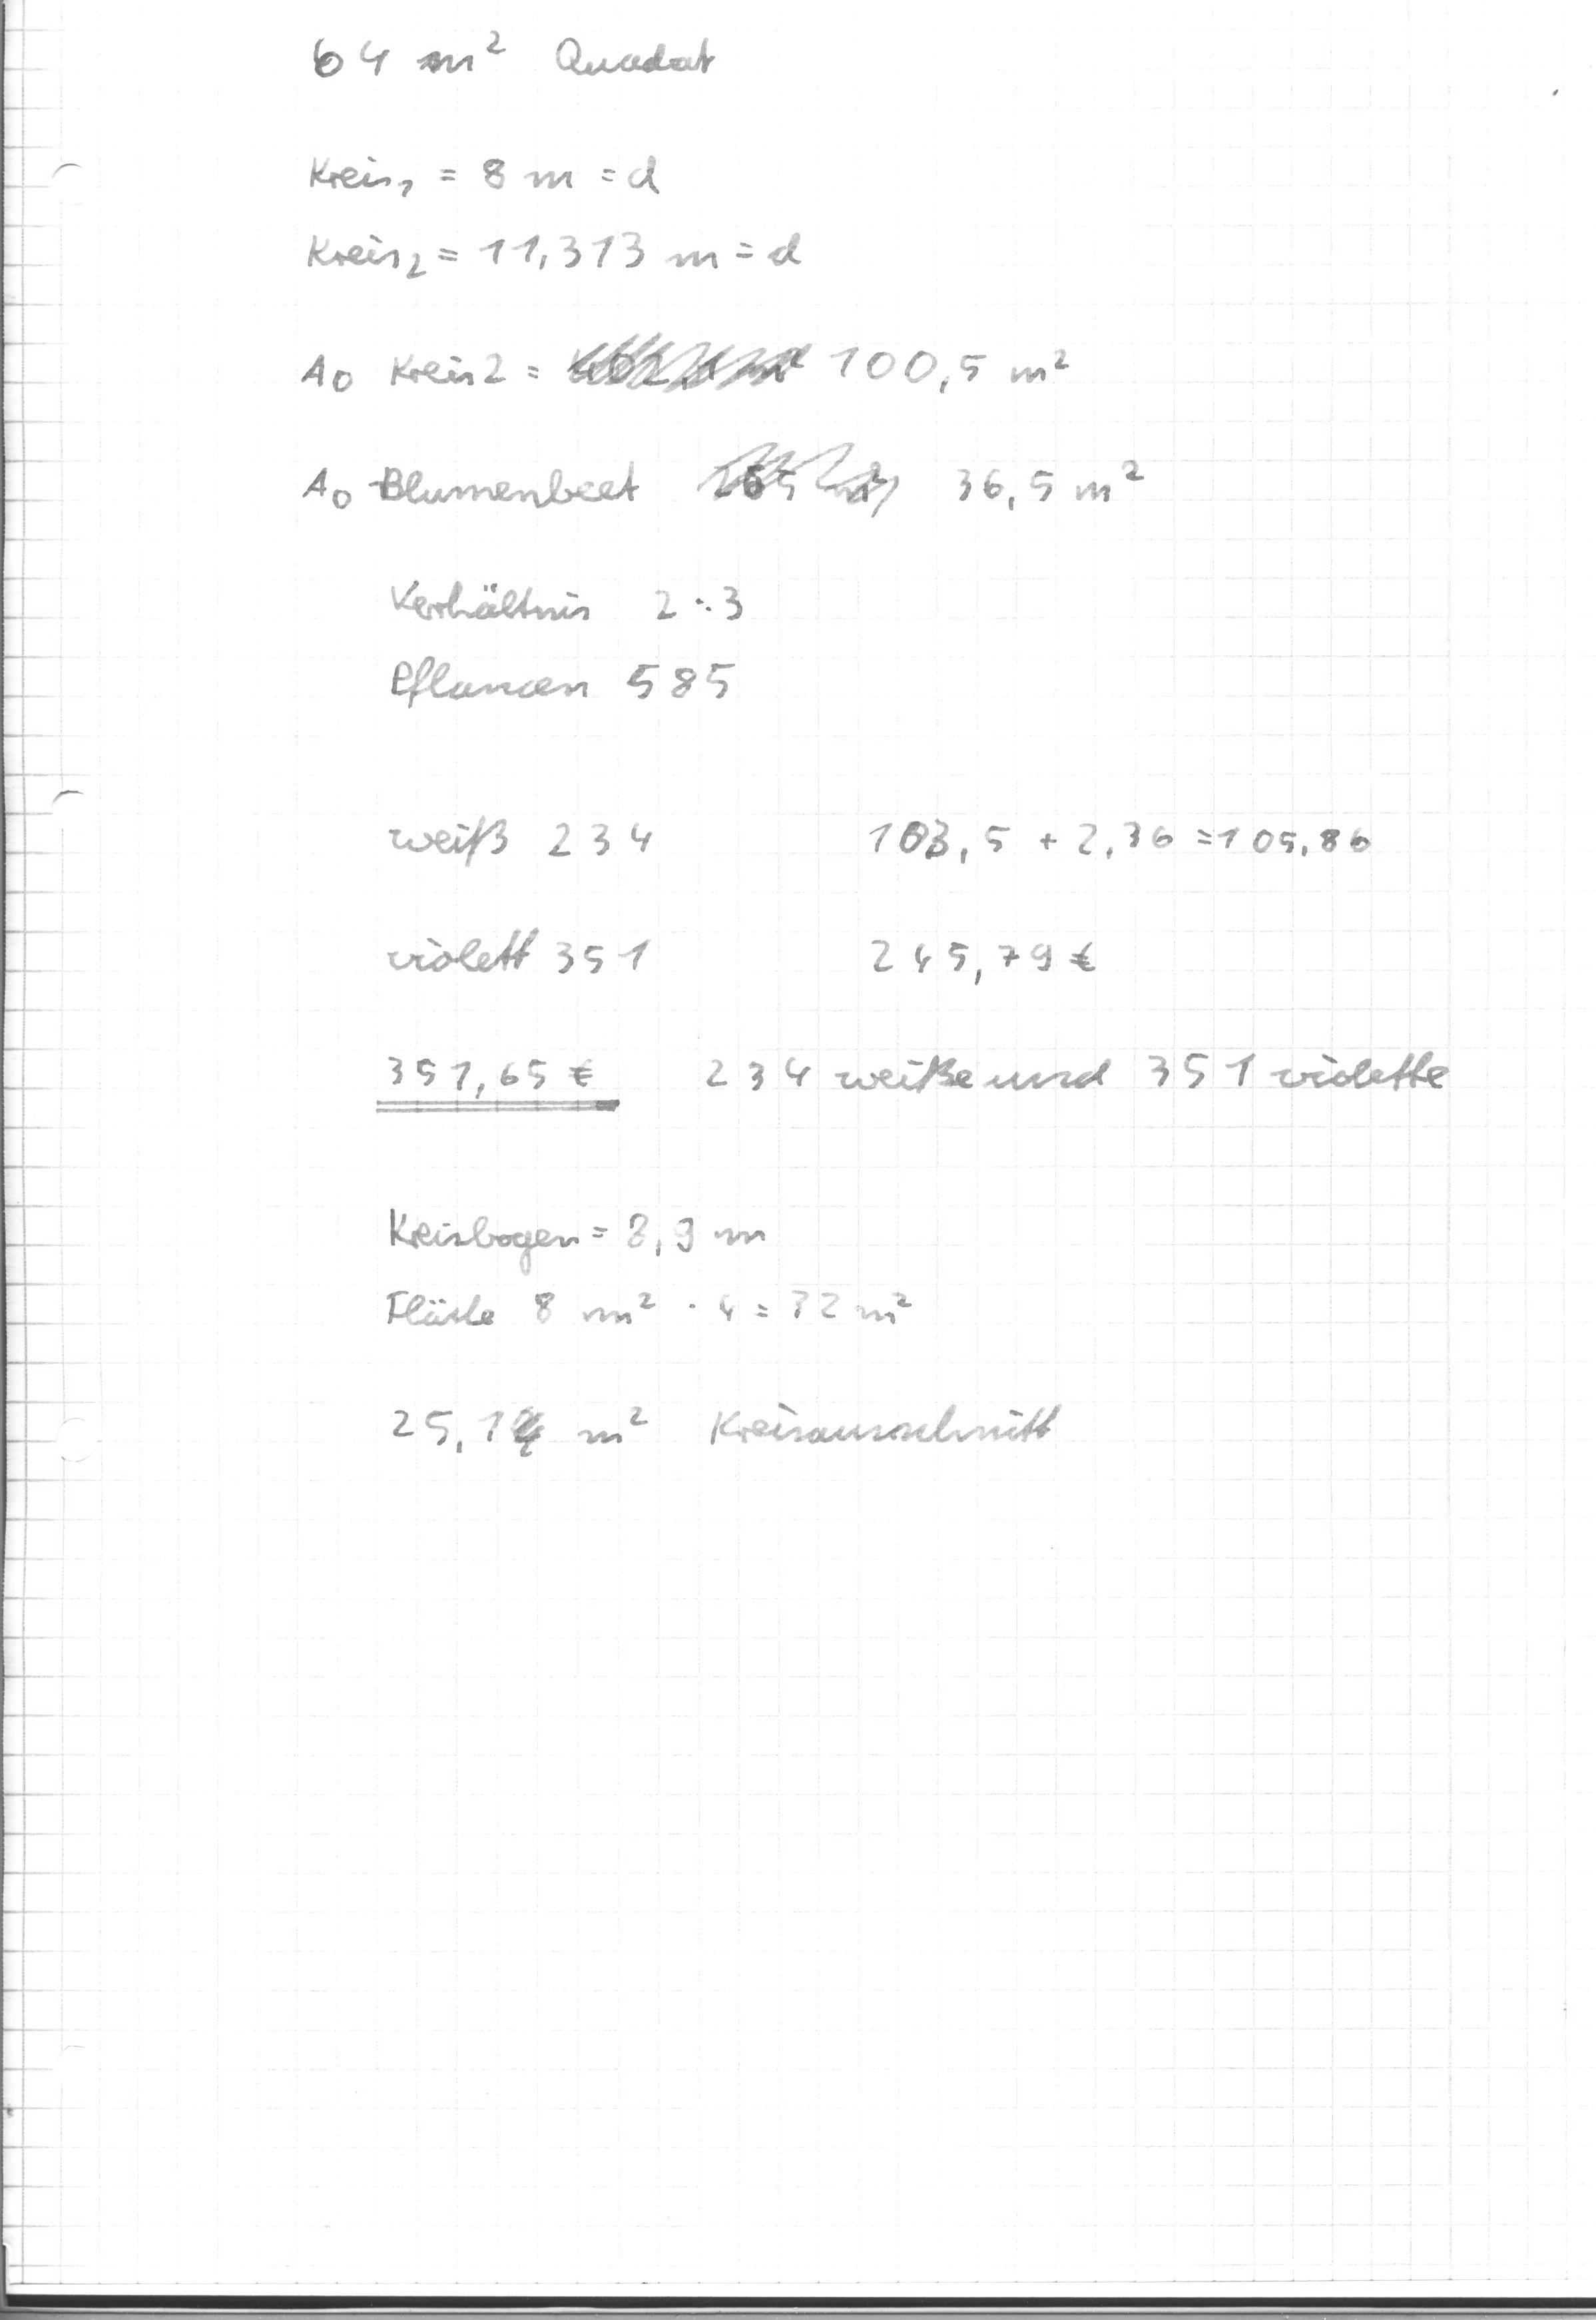 64 m² Quadat
Kreis₁ = 8 m = d
Kreis₂ = 11,313 m = d
A₀ Kreis2 = 100,5 m²
A₀ Blumenbeet 36,5 m²
Verhältnis 2:3
Pflanzen 585
weiß 234 103,5 + 2,36 = 105,86
violett 351 245,79 €
351,65 € 234 weiße und 351 violette
Kreisbogen = 8,9 m
Fläche 8 m² · 4 = 32 m²
25,14 m² Kreisausschnitt